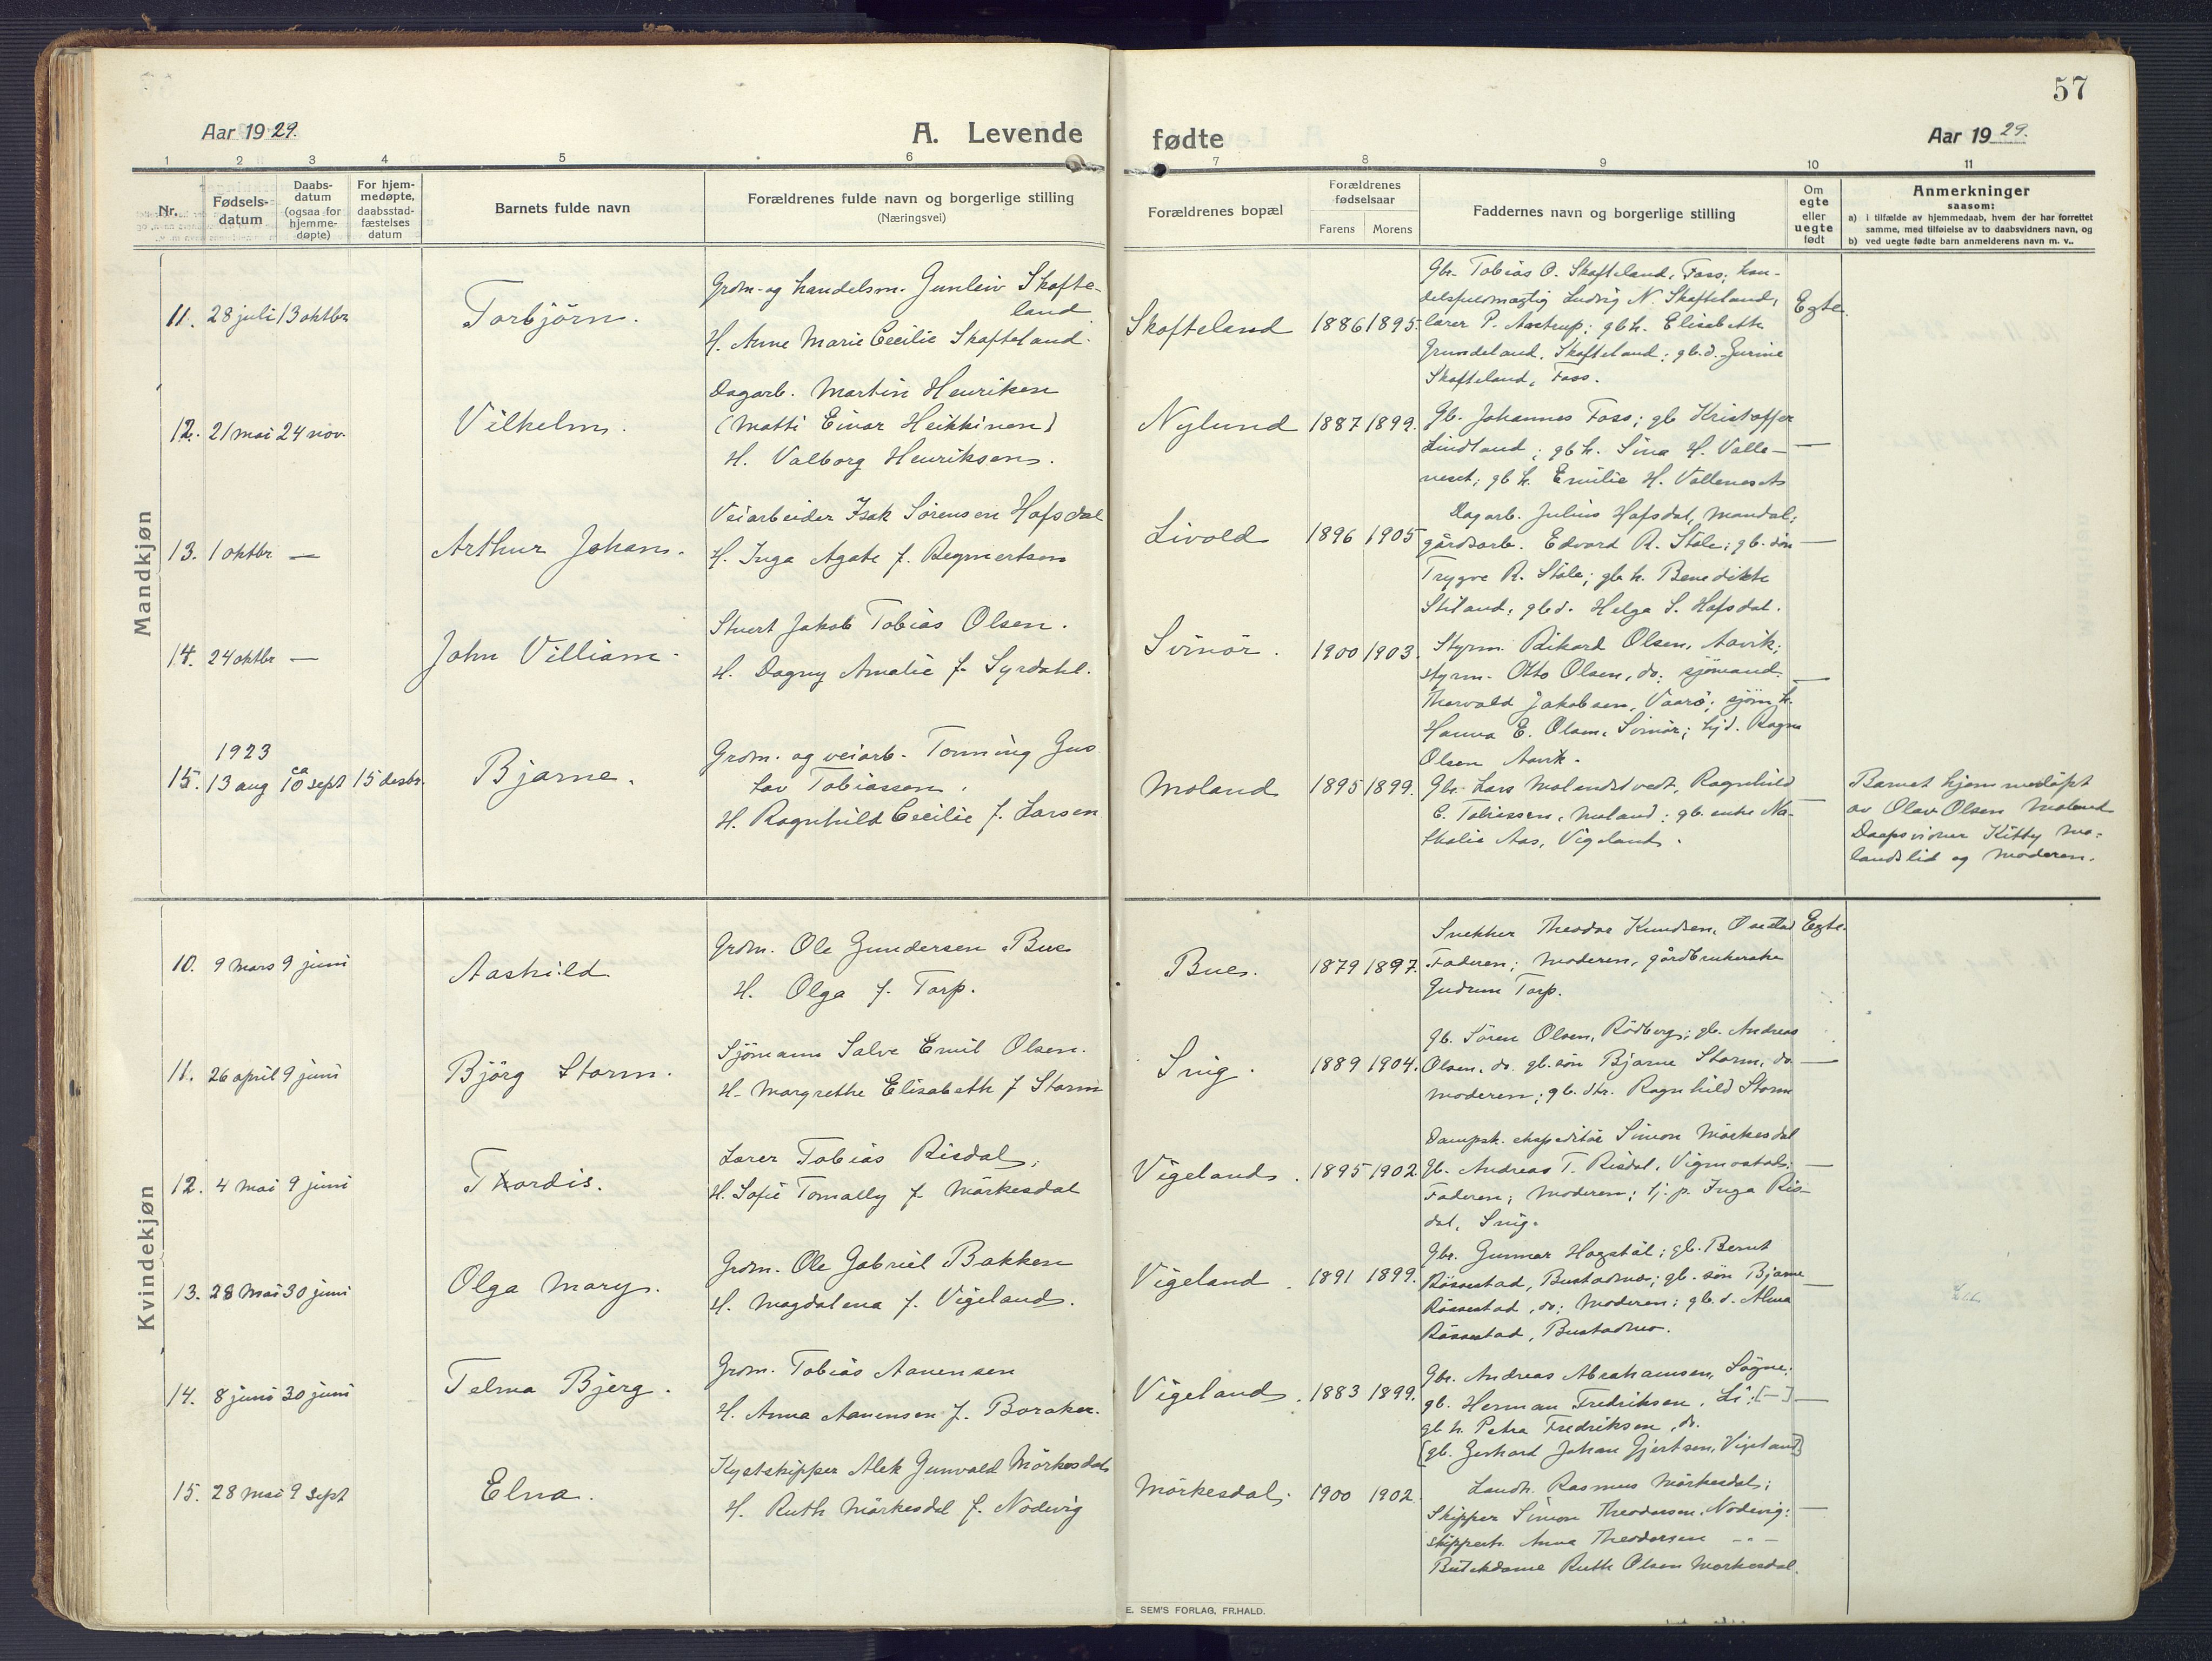 57
Aar 1929.
A. Levende
fødte
Aar 1929.
1 2 3 4 5 6 7 8 9 10 11
Nr.
Fødsels-
datum
Daabs-
datum
(ogsaa for
hjemme-
døpte)
For hjem-
medøpte,
daabsstad-
fæstelses
datum
Barnets fulde navn
Forældrenes fulde navn og borgerlige stilling
(Næringsvei)
Forældrenes bopæl
Forældrenes
fødselsaar
Farens Morens
Faddernes navn og borgerlige stilling
Om
egte
eller
uegte
født
Anmerkninger
saasom:
a) i tilfælde av hjemmedaab, hvem der har forrettet
samme, med tilføielse av to daabsvidners navn, og
b) ved uegte fødte barn anmelderens navn m. v..
Mandkjøn
11. 28 juli 13 oktbr
Torbjörn.
Grdm. og handelsm. Gunleiv Skofte-
land
H. Anne Marie Cecilie Skofteland.
Skofteland 1886 1895.
Gbr. Tobias O. Skofteland, Foss; han-
delsfuldmægtig Ludvig N. Skofteland,
lærer P. Aastrup; gbh. Elisabeth
Grundeland, Skofteland; gb.d. Gurine
Skofteland, Foss.
Egte.
12. 21 mai 24 nov.
Vilhelm.
Dagarb. Martin Henriksen
(Matti Einar Heikkinen)
H. Valborg Henriksen.
Nylund 1887 1899.
Gb. Johannes Foss; gb Kristoffer
Lindland; gb h. Sina H. Valle-
neset; gb h. Emilie H. Valleneset
—
13. 1 oktbr —
Arthur Johan.
Veiarbeider Isak Sörensen Hafsdal
H. Inga Agate f. Regmertsen
Livold 1896 1905
Dagarb. Julius Hafsdal, Mandal;
gårdsarb. Edvard R. Ståle; gb. sön
Trygve R. Ståle; gb h. Benedikte
Stiland, gb d. Helga S. Hafsdal.
—
14. 24 oktbr —
John Villiam.
Stuert Jakob Tobias Olsen.
H. Dagny Amalie f. Syrdahl.
Svinör. 1900 1903.
Styrm. Rikard Olsen, Aavik;
styrm. Otto Olsen, do; sjömand
Thorvald Jakobsen, Vaarö; sjöm h.
Hanna E. Olsen, Svinör; tj d. Ragna
Olsen Aavik.
—
1923
15. 13 aug ca 10 sept 15 desbr.
Bjarne.
Grdm. og veiarb. Tönning Gus
tav Tobiassen.
H. Ragnhild Cecilie f. Larsen
Moland 1895 1899.
Gbr. Lars Molandstvedt, Ragnhild
C. Tobiassen, Moland; gb. enke Na-
thalie Aas, Vigeland.
—
Barnet hjemmedöpt
av Olav Olsen Moland
Daapsvidner Kitty Mo-
landslid og Moderen.
Kvindekjøn
10. 9 mars 9 juni
Aashild
Grdm. Ole Gundersen Bue
H. Olga f. Tarp.
Bue. 1879 1897.
Snekker Theodor Knudsen, Öiestad
Faderen; Moderen, gårdbrukerske
Gudrun Tarp.
Egte.
11. 26 april 9 juni
Björg Storm.
Sjömann Salve Emil Olsen.
H. Margrethe Elisabeth f Storm
Snig. 1889 1904.
gb. Sören Olsen, Rödberg; gb. Andreas
Olsen, do. gb. sön Bjarne Storm, do
moderen; gb. dtr. Ragnhild Storm
—
12. 4 mai 9 juni
Thordis.
Lærer Tobias Risdal.
H. Sofie Tomally f. Mörkesdal
Vigeland. 1895 1902.
Dampsk. ekspeditör Simon Mörkesdal
Gb. Andreas T. Risdal, Vigmostad;
Faderen; Moderen; tj. p. Inga Ris-
dal, Snig.
—
13. 28 mai 30 juni
Olga Mary.
Grdm. Ole Gabriel Bakken
H. Magdalena f. Vigeland.
Vigeland. 1891 1899.
Gbr. Gunnar Hogstöl; gb. Bernt
Rössestad, Bustadmo; gb. sön Bjarne
Rössestad, do; Moderen; gb. d. Alma
Rössestad, Bustadmo.
—
14. 8 juni 30 juni
Telma Bjerg.
Grdm. Tobias Aanensen
H. Anna Aanensen f. Boraker.
Vigeland. 1883 1899.
Gbr. Andreas Abrahamsen, Sögne;
gb. Herman Fredriksen, Li; [—]
gb h. Petra Fredriksen, do.
[gb. Gerhard Johan Gjertsen, Vigeland]
—
15. 28 mai 9 sept
Elna.
Kystskipper Alek Gunvald Mörkesdal
H. Ruth Mörkesdal f. Nodevig
Mörkesdal. 1900 1902.
Landh. Rasmus Mörkesdal;
Skipper Simon Theodorsen, Nodevig;
skippeh. Anna Theodorsen - " -
Butikdame Ruth Olsen Mörkesdal.
—
E. SEM'S FORLAG, FR.HALD.